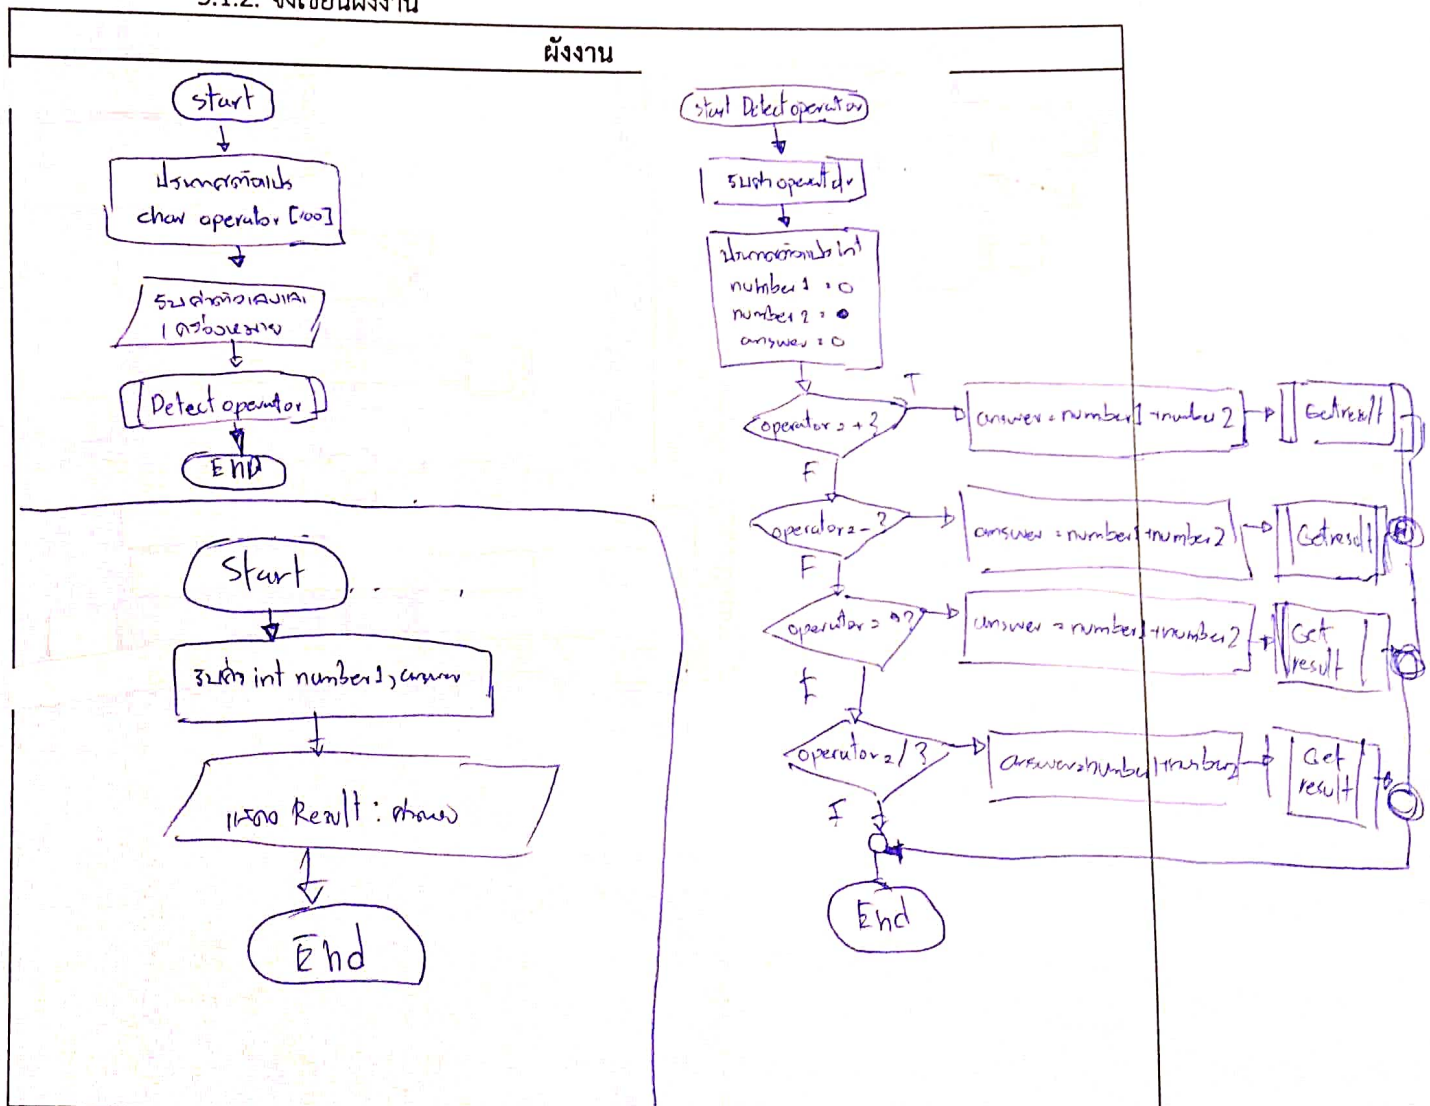 5.1.2. จงเขียนผังงาน
ผังงาน
Start
ประกาศตัวแปร
char operator [100]
รับค่าตัวเลขและ
เครื่องหมาย
Detect operator
End
Start
รับค่า int number1, answer
แสดง Result : คำตอบ
End
Start Detect operator
รับค่า operator
ประกาศตัวแปร int
number 1 = 0
number 2 = 0
answer = 0
operator = + ?
T
answer = number1 + number 2
Getresult
F
operator = - ?
answer = number1 + number2
Getresult
F
answer = number1 + number2
Get
result
F
operator = / ?
answer = number1 + number2
Get
result
F
End